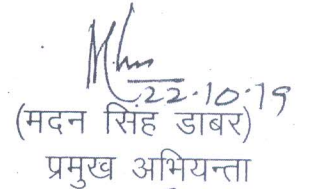 22.10.19
(मदन सिंह डाबर)
प्रमुख अभियन्ता